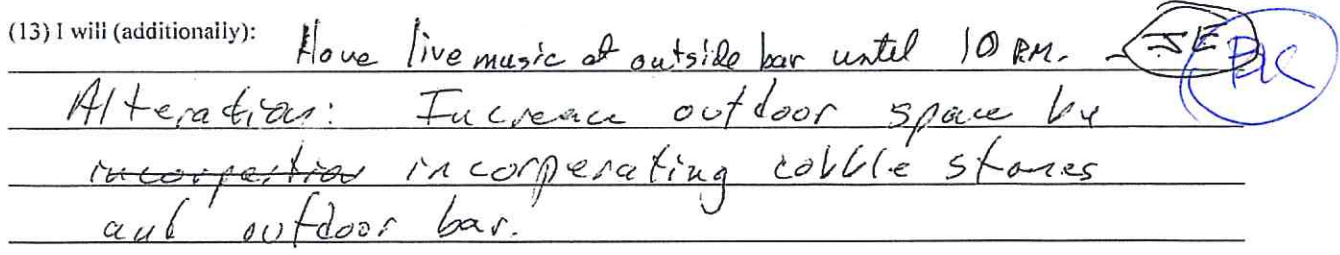 (13) I will (additionally): Have live music at outside bar until 10 PM. - JE PK
Alteration: Increace outdoor space by
incorpertion incorperating cobble stones
and outdoor bar.